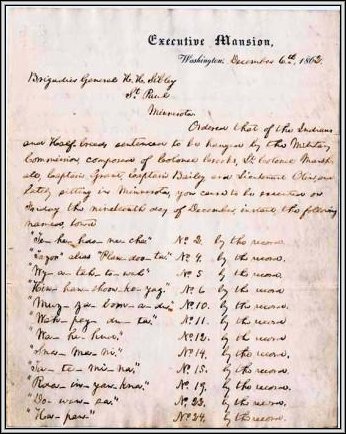 Executive Mansion,
Washington, December 6th, 1862.
Brigadier General H. H. Sibley
St. Paul
Minnesota.
Ordered that of the Indians
and Half-breeds sentenced to be hanged by the Military
Commission, composed of Colonel Crooks, Lt. Colonel Marsh-
all, Captain Grant, Captain Bailey and Lieutenant Olin, and
lately sitting in Minnesota, you cause to be executed on
Friday the nineteenth day of December, instant, the following
named, towit
"Te-he-hdo-ne-cha" No. 2. by the record.
"Tazoo" alias "Plan-doo-ta" No. 4. by the record.
"Wy-a-tah-to-wah" No. 5 by the record.
"Hin-han-shoon-ko-yag" No. 6 by the record.
"Muz-za-bom-a-du" No. 10. by the record.
"Wah-pay-du-ta" No. 11. by the record.
"Wa-he-hud" No. 12. by the record.
"Sna-ma-ni" No. 14. by the record.
"Ta-te-mi-na" No. 15. by the record.
"Rda-in-yan-kna" No. 19. by the record.
"Do-wan-sa" No. 22. by the record.
"Ha-pan" No. 24. by the record.